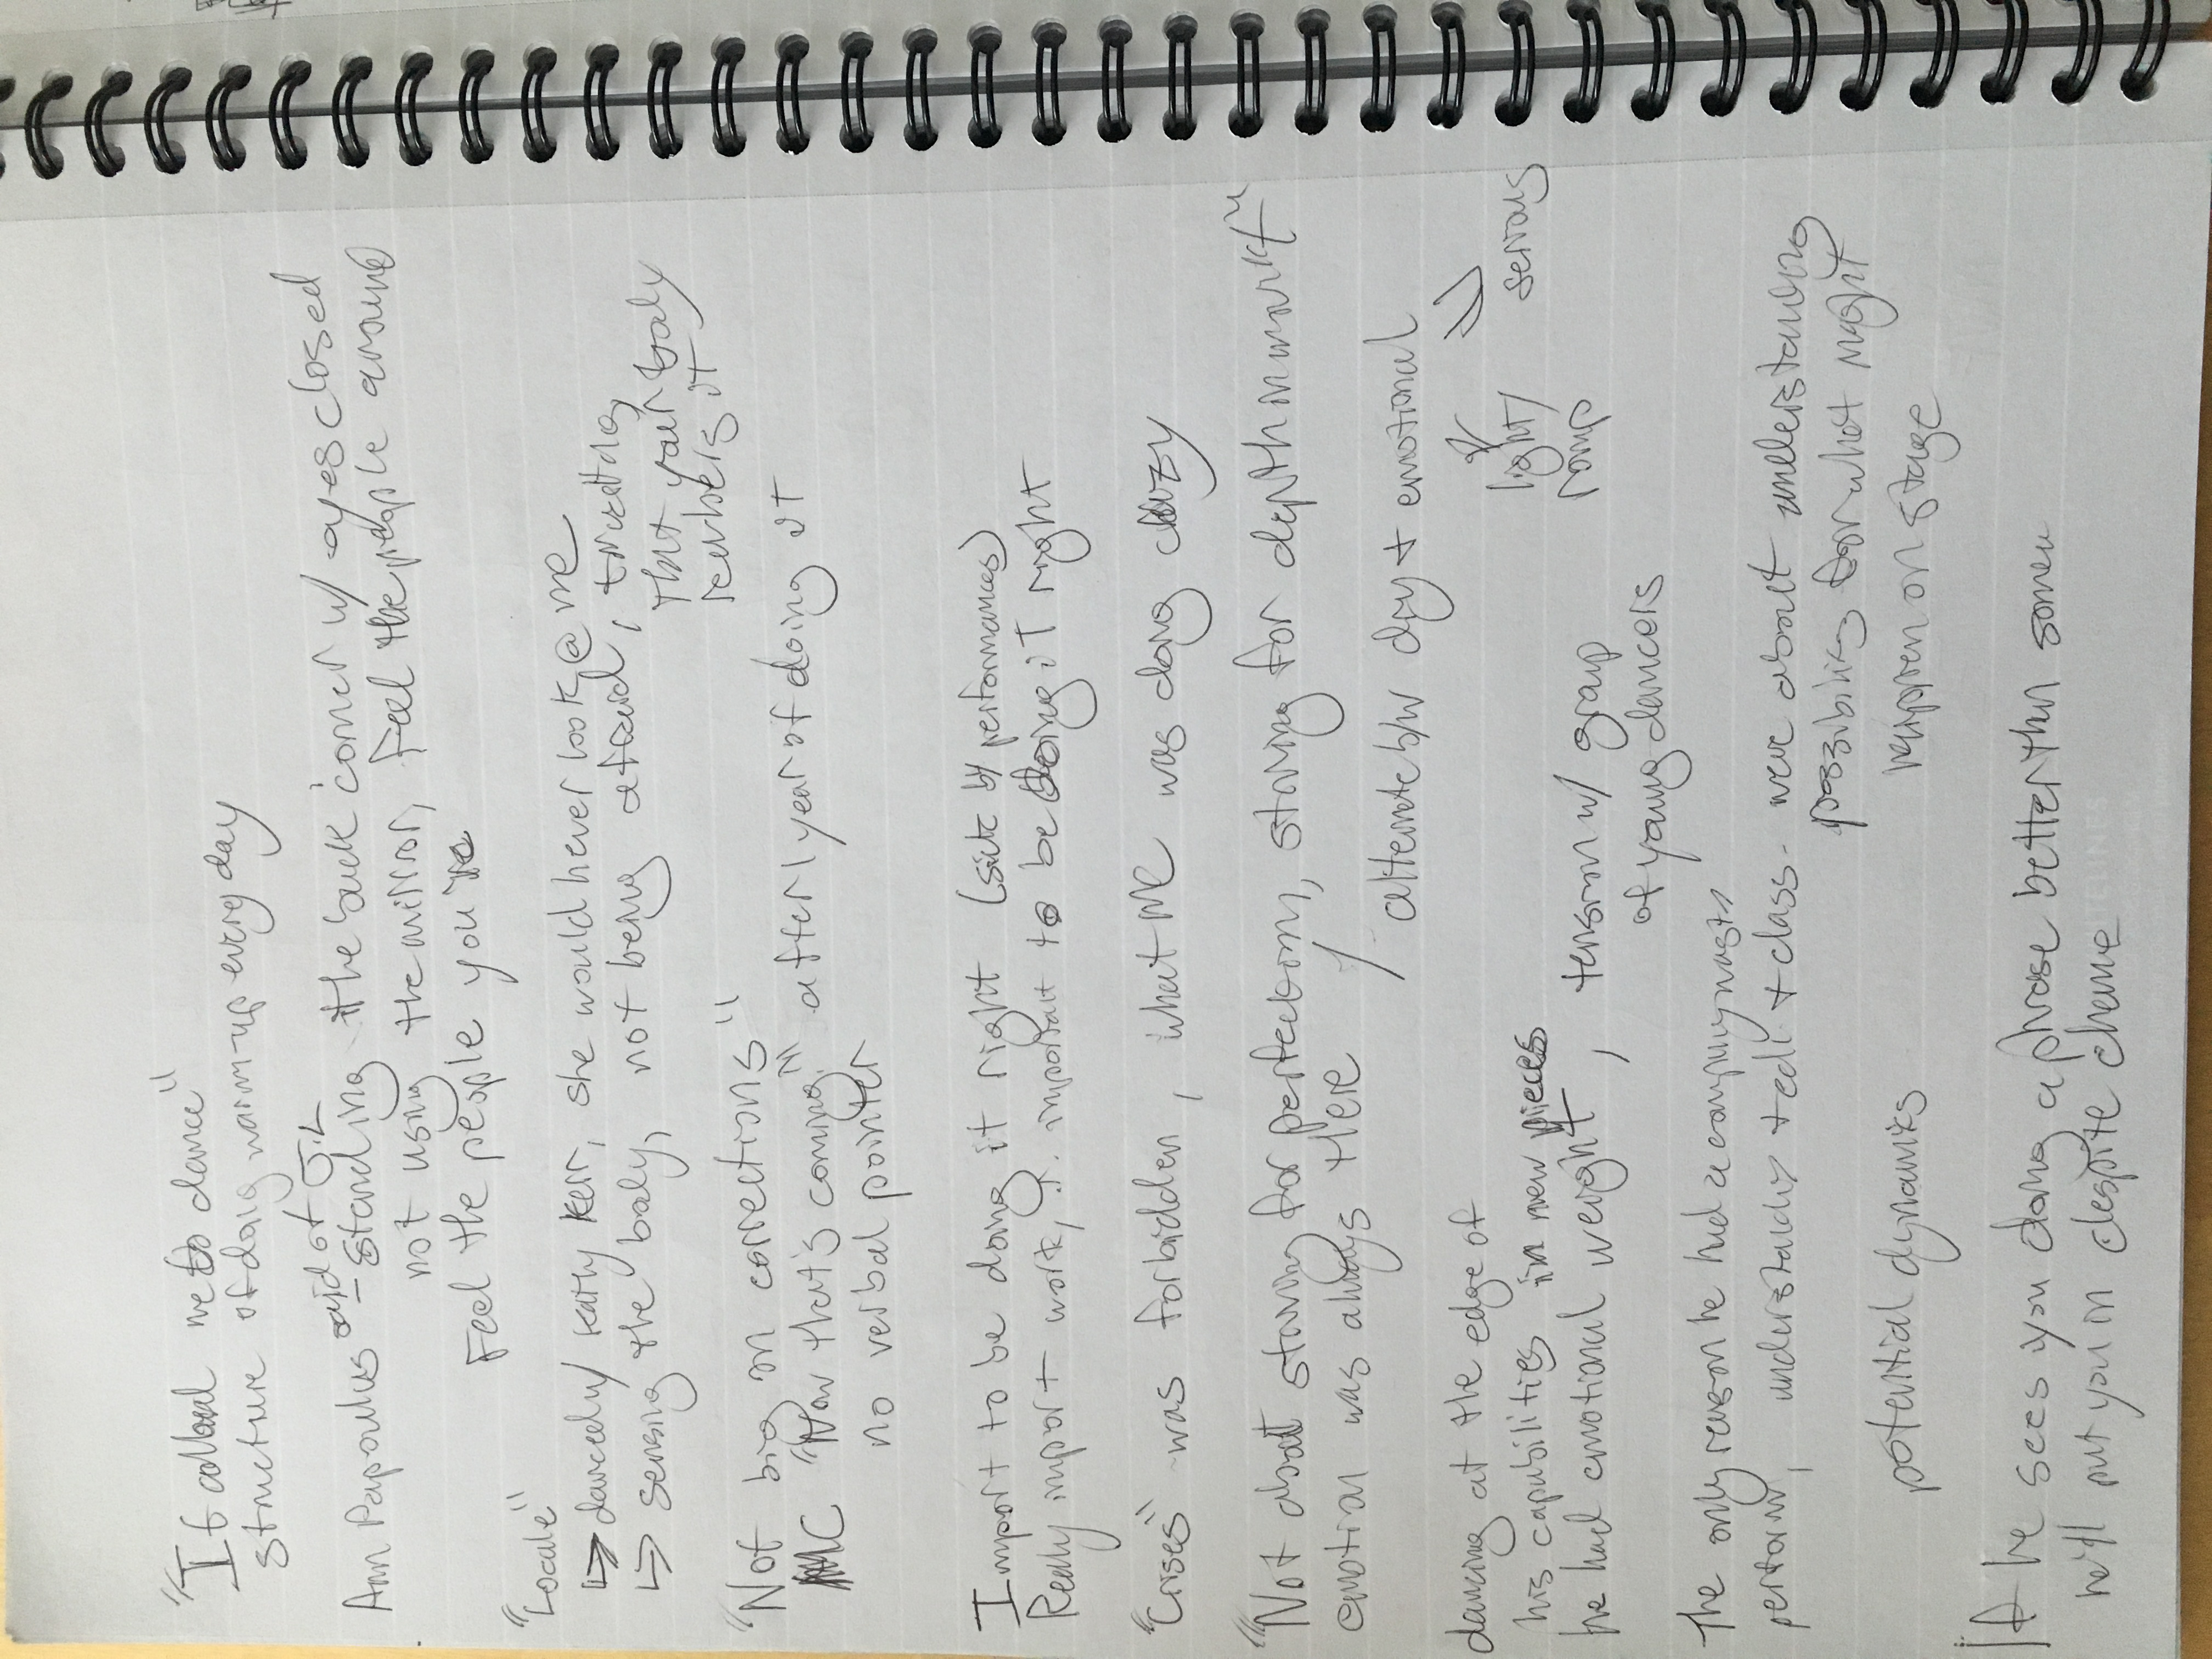 "It allowed me to dance"
structure of doing warm-up every day
Ann Papoulis out of
standing the back corner w/ eyes closed
not using the mirror, feel the people around
Feel the people you're
"Locale"
↳ danced w/ Kathy Kerr, she would never look @ me
↳ sensing the body, not being afraid, trusting
that your body
rembers it
"Not big on corrections"
MC "Now that's coming" after 1 year of doing it
no verbal pointer
Import to be doing it right (sick by performances)
Really import work, important to be doing it right
"Crises" was forbidden, what ME was doing crazy
"Not about striving for perfection, striving for depth in work"
emotion was always there
alternate b/w dry + emotional
light/ serious
romp
dancing at the edge of
his capabilities in new pieces
he had emotional weight, tension w/ group
of young dancers
The only reason he had a company was to
perform, understands + class. were about understanding
possibility for what might
happen on stage
potential dynamics
If he sees you doing a phrase better than some
he'll put you in despite chance